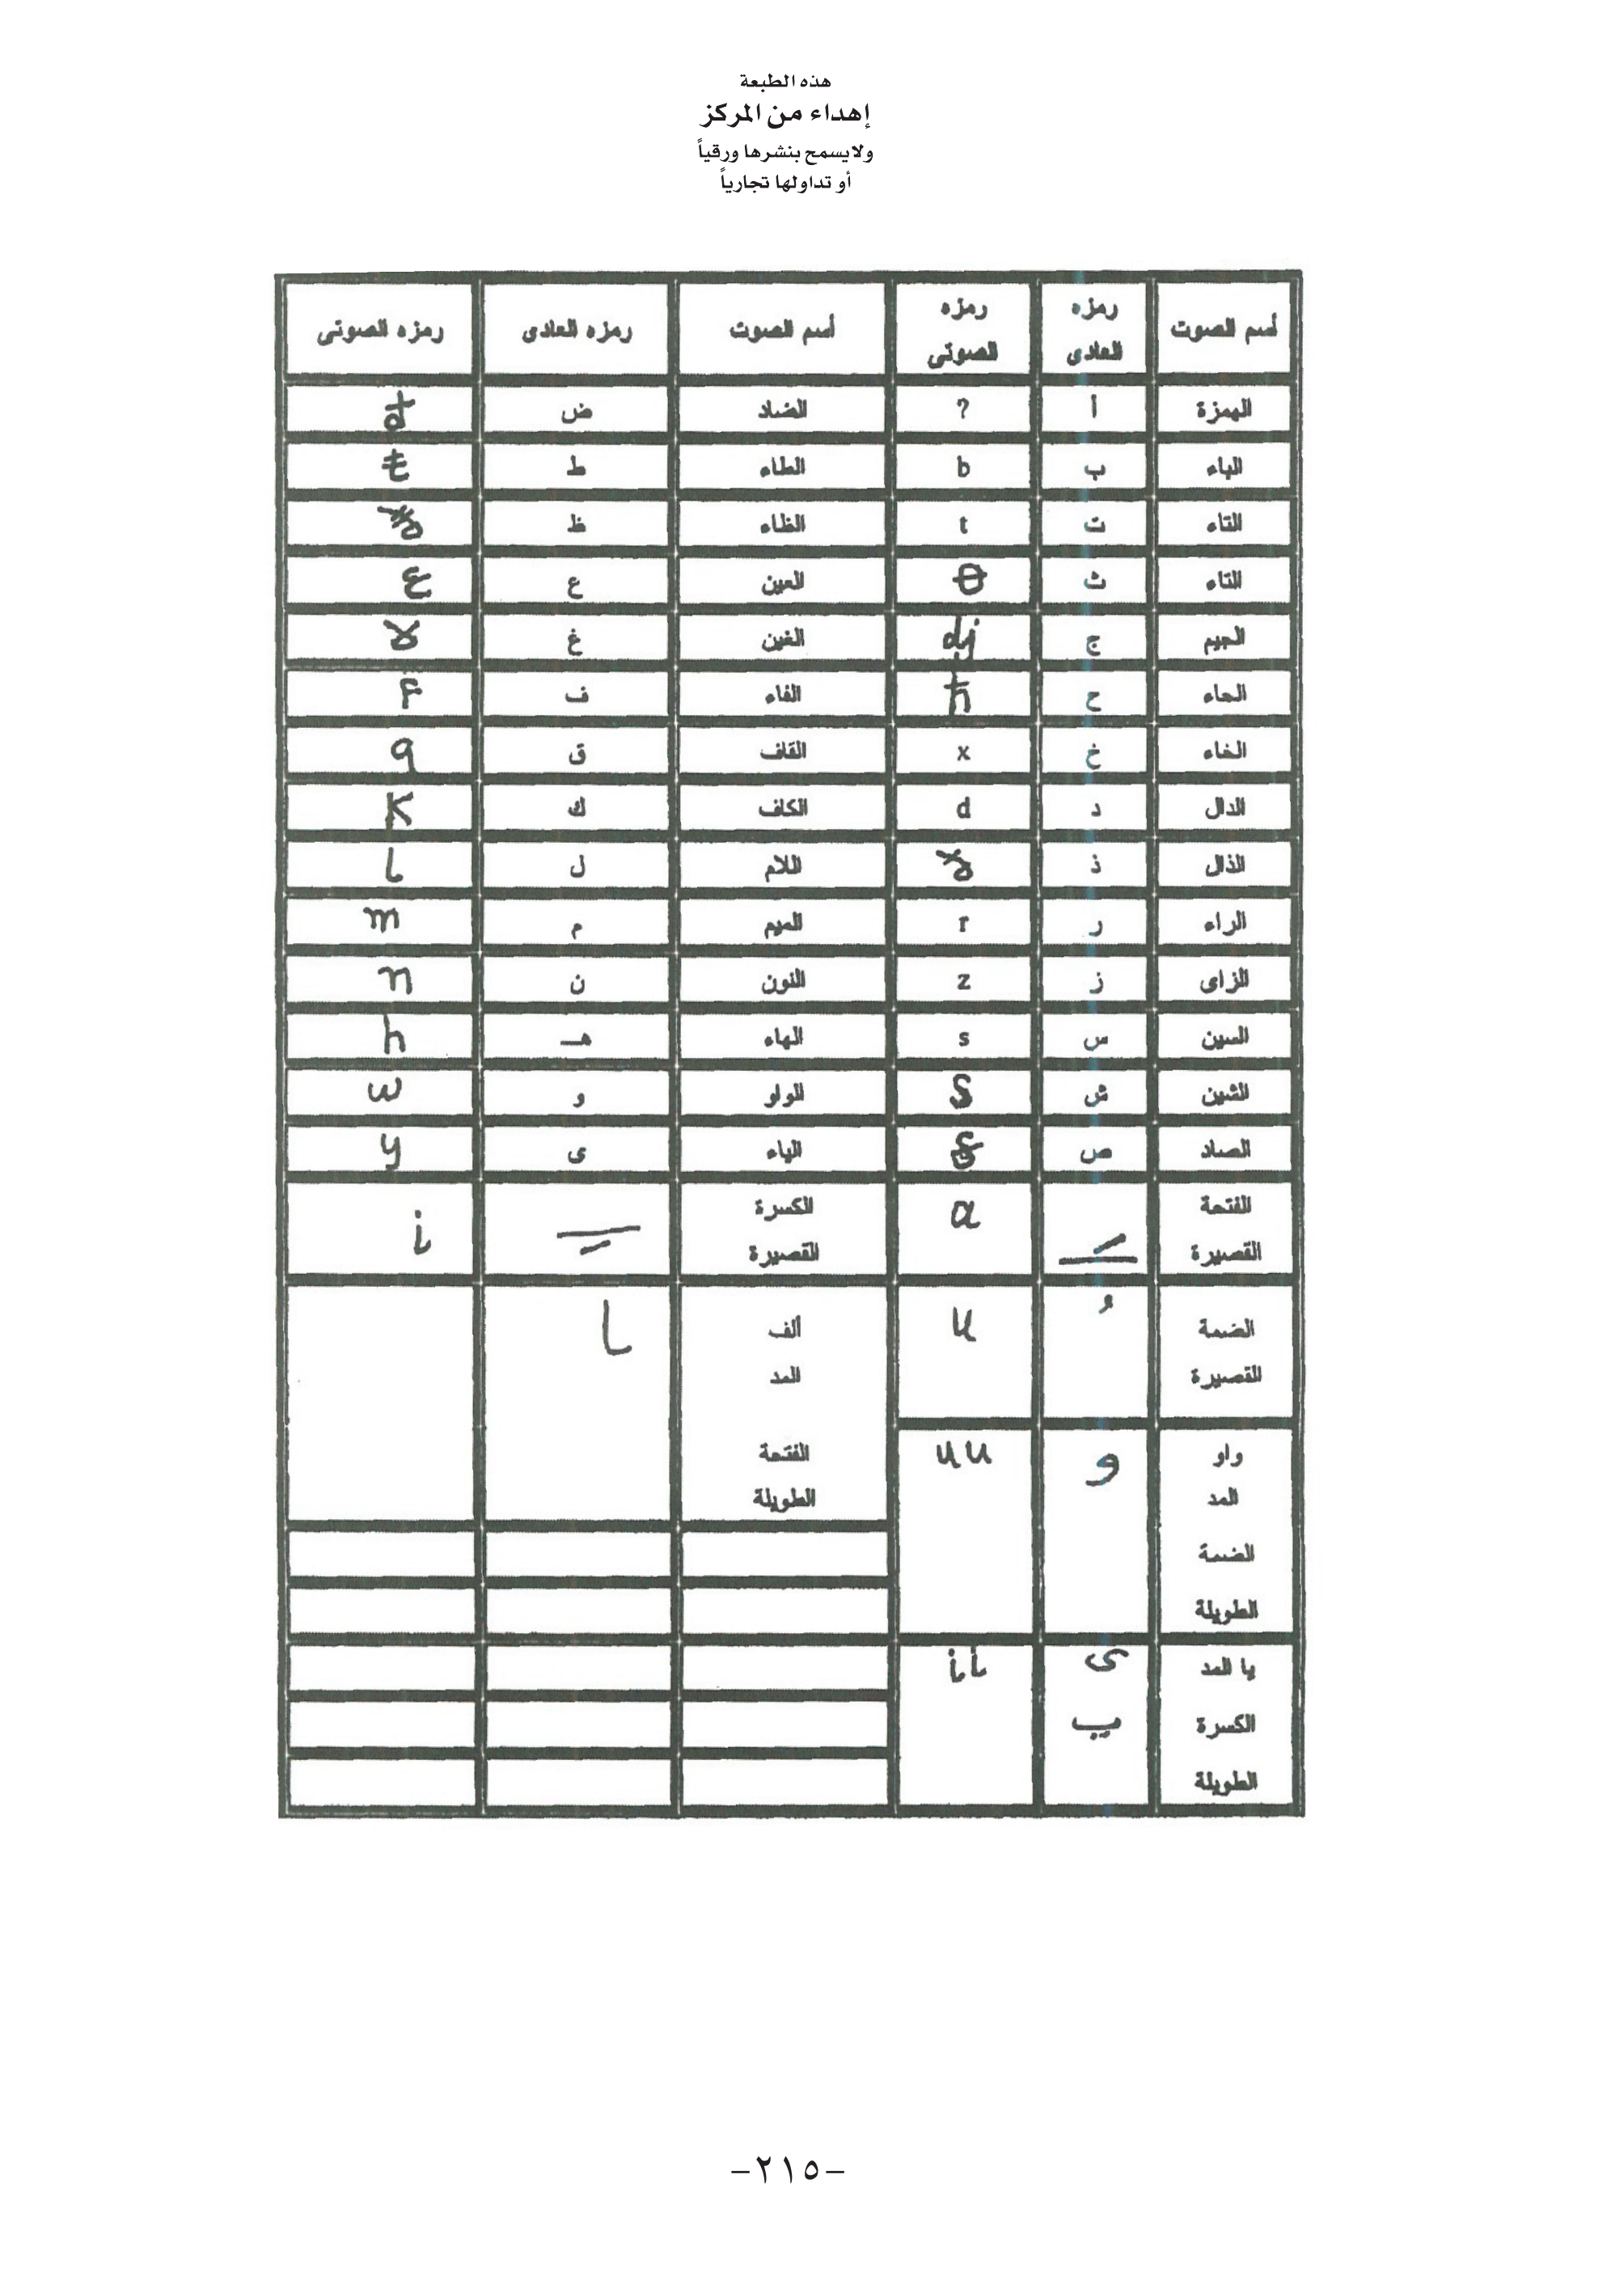 هذه الطبعة
إهداء من المركز
ولايسمح بنشرها ورقياً
أو تداولها تجارياً
أسم الصوت رمزه العادى رمزه الصوتى أسم الصوت رمزه العادى رمزه الصوتى
الهمزة أ ? الضاد ض
الباء ب b الطاء ط
التاء ت t الظاء ظ
الثاء ث θ العين ع ع
الجيم ج dj الغين غ ɣ
الحاء ح ħ الفاء ف f
الخاء خ x القاف ق q
الدال د d الكاف ك K
الذال ذ ४ اللام ل l
الراء ر r الميم م m
الزاى ز z النون ن n
السين س s الهاء هـ h
الشين ش الواو و w
الصاد ص الياء ى y
الفتحة القصيرة َ a الكسرة القصيرة ِ i
الضمة القصيرة ُ u ألف المد الفتحة الطويلة ا
واو المد الضمة الطويلة و uu
يا المد الكسرة الطويلة ى يـ ii
-٢١٥-